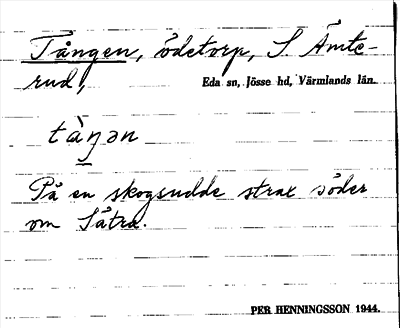 Tången, ödetorp, S. Ämte-
rud,
Eda sn, Jösse hd, Värmlands län.
tàŋən
På en skogsudde strax söder
om Sätra.
PER HENNINGSSON 1944.